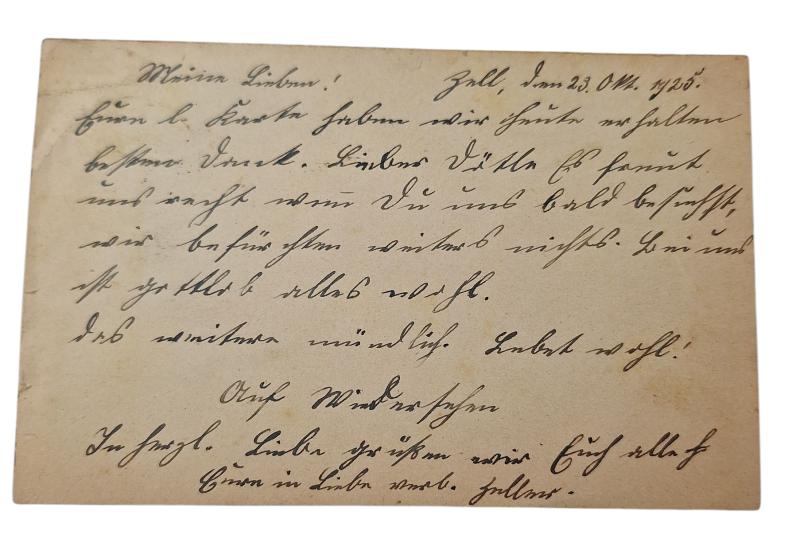 Meine Lieben! Zell, den 23. Okt. 1925.
Eure l. Karte haben wir heute erhalten
besten Dank. Lieber Dötle Es freut
uns recht wenn Du uns bald besuchst,
wir befürchten weiters nichts. Bei uns
ist gottlob alles wohl.
das weitere mündlich. Lebet wohl!
Auf Wiedersehen
In herzl. Liebe grüßen wir Euch alle
Eure in Liebe verb. Heller.